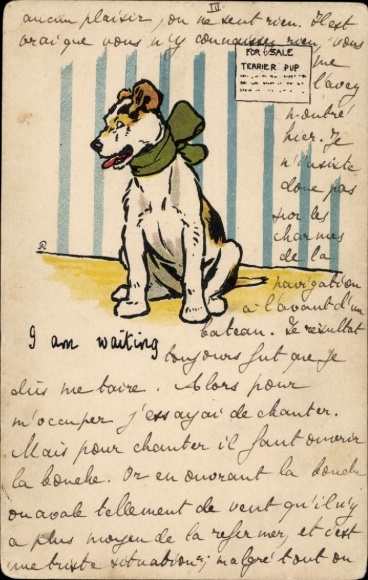 IV
aucun plaisir, on ne sent rien. Il est
vrai que vous n'y connaissez rien, vous
FOR SALE
TERRIER PUP
me
l'avez
montré
hier. Je
n'insiste
donc pas
sur les
charmes
de la
navigation
à l'avant d'un
bateau. Le résultat
I am waiting
toujours fut que je
dus me taire. Alors pour
m'occuper j'essayai de chanter.
Mais pour chanter il faut ouvrir
la bouche. Or en ouvrant la bouche
on avale tellement de vent qu'il n'y
a plus moyen de la refermer, et c'est
une triste situation; malgré tout on